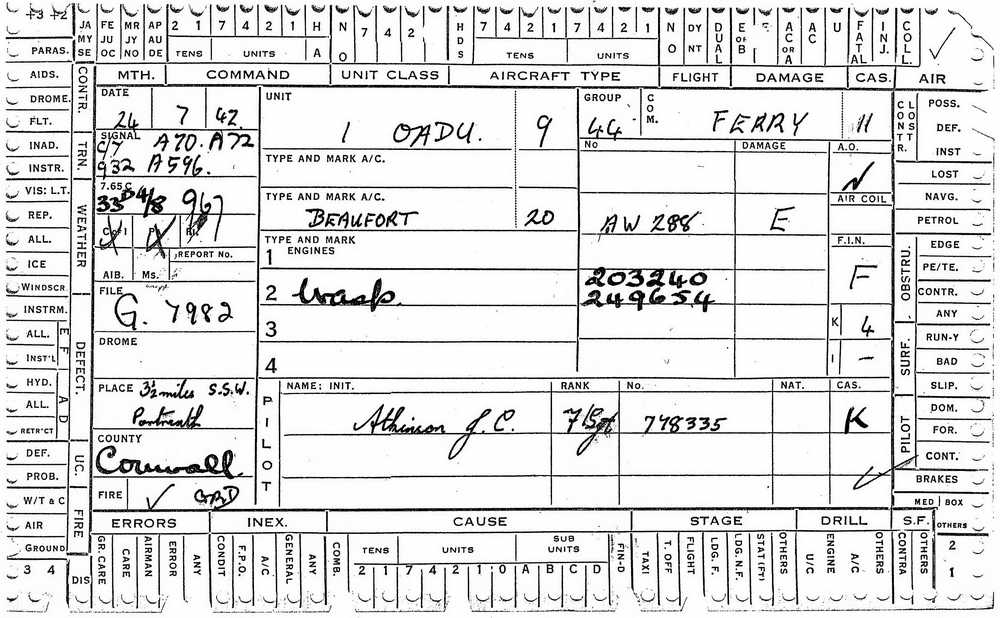 +3 +2 JA MY SE FE JU OC MR JY NO AP AU DE 2 1 7 4 2 1 H A N O 7 4 2 H D S 7 4 2 1 7 4 2 1 N O DY NT DUAL E OF B F AC OR A AC U FATAL INJ. COLL.
PARAS. TENS UNITS TENS UNITS
AIDS. CONTR. MTH. COMMAND UNIT CLASS AIRCRAFT TYPE FLIGHT DAMAGE CAS. AIR
DROME. DATE UNIT GROUP COM. CONTR. CLOSTR. POSS.
FLT. 24 7 42. 1 OADU. 9 44 FERRY 11 DEF.
INAD. TRN. SIGNAL A70. A72 No DAMAGE A.O. INST
INSTR. 932 A596. TYPE AND MARK A/C. N LOST
VIS: L.T. 7.65 C TYPE AND MARK A/C. AIR COIL NAVG.
REP. WEATHER 33 4/8 967 BEAUFORT 20 AW 288 E PETROL
ALL. TYPE AND MARK ENGINES F.I.N. OBSTRU. EDGE
ICE REPORT No. 1 PE/TE.
AIB. Ms. 203240 F
WINDSCR. FILE 2 Wasp. 249654 CONTR.
INSTRM. G. 7982 ANY
ALL. E F DEFECT. DROME 3 K 4 SURF. RUN-Y
INST'L 4 I - BAD
HYD. A D PLACE 3½ miles S.S.W. PILOT NAME: INIT. RANK No. NAT. CAS. SLIP.
ALL. Portreath Atkinson J.C. F/Sgt 778335 K PILOT DOM.
RETR'CT COUNTY FOR.
DEF. U.C. Cornwall. CONT.
PROB. BRAKES
W/T & C FIRE FIRE GRD MED BOX
AIR ERRORS INEX. CAUSE STAGE DRILL S.F. OTHERS
GROUND GR. CARE CARE AIRMAN ERROR ANY CONDIT F.P.O. A/C GENERAL ANY COMB. TENS UNITS SUB UNITS FIN-D TAXI T. OFF FLIGHT LDG. F. LDG. N.F. STAT (FY) OTHERS U/C ENGINE A/C OTHERS CONTRA OTHERS 2
3 4 DIS 2 1 7 4 2 1 0 A B C D 1